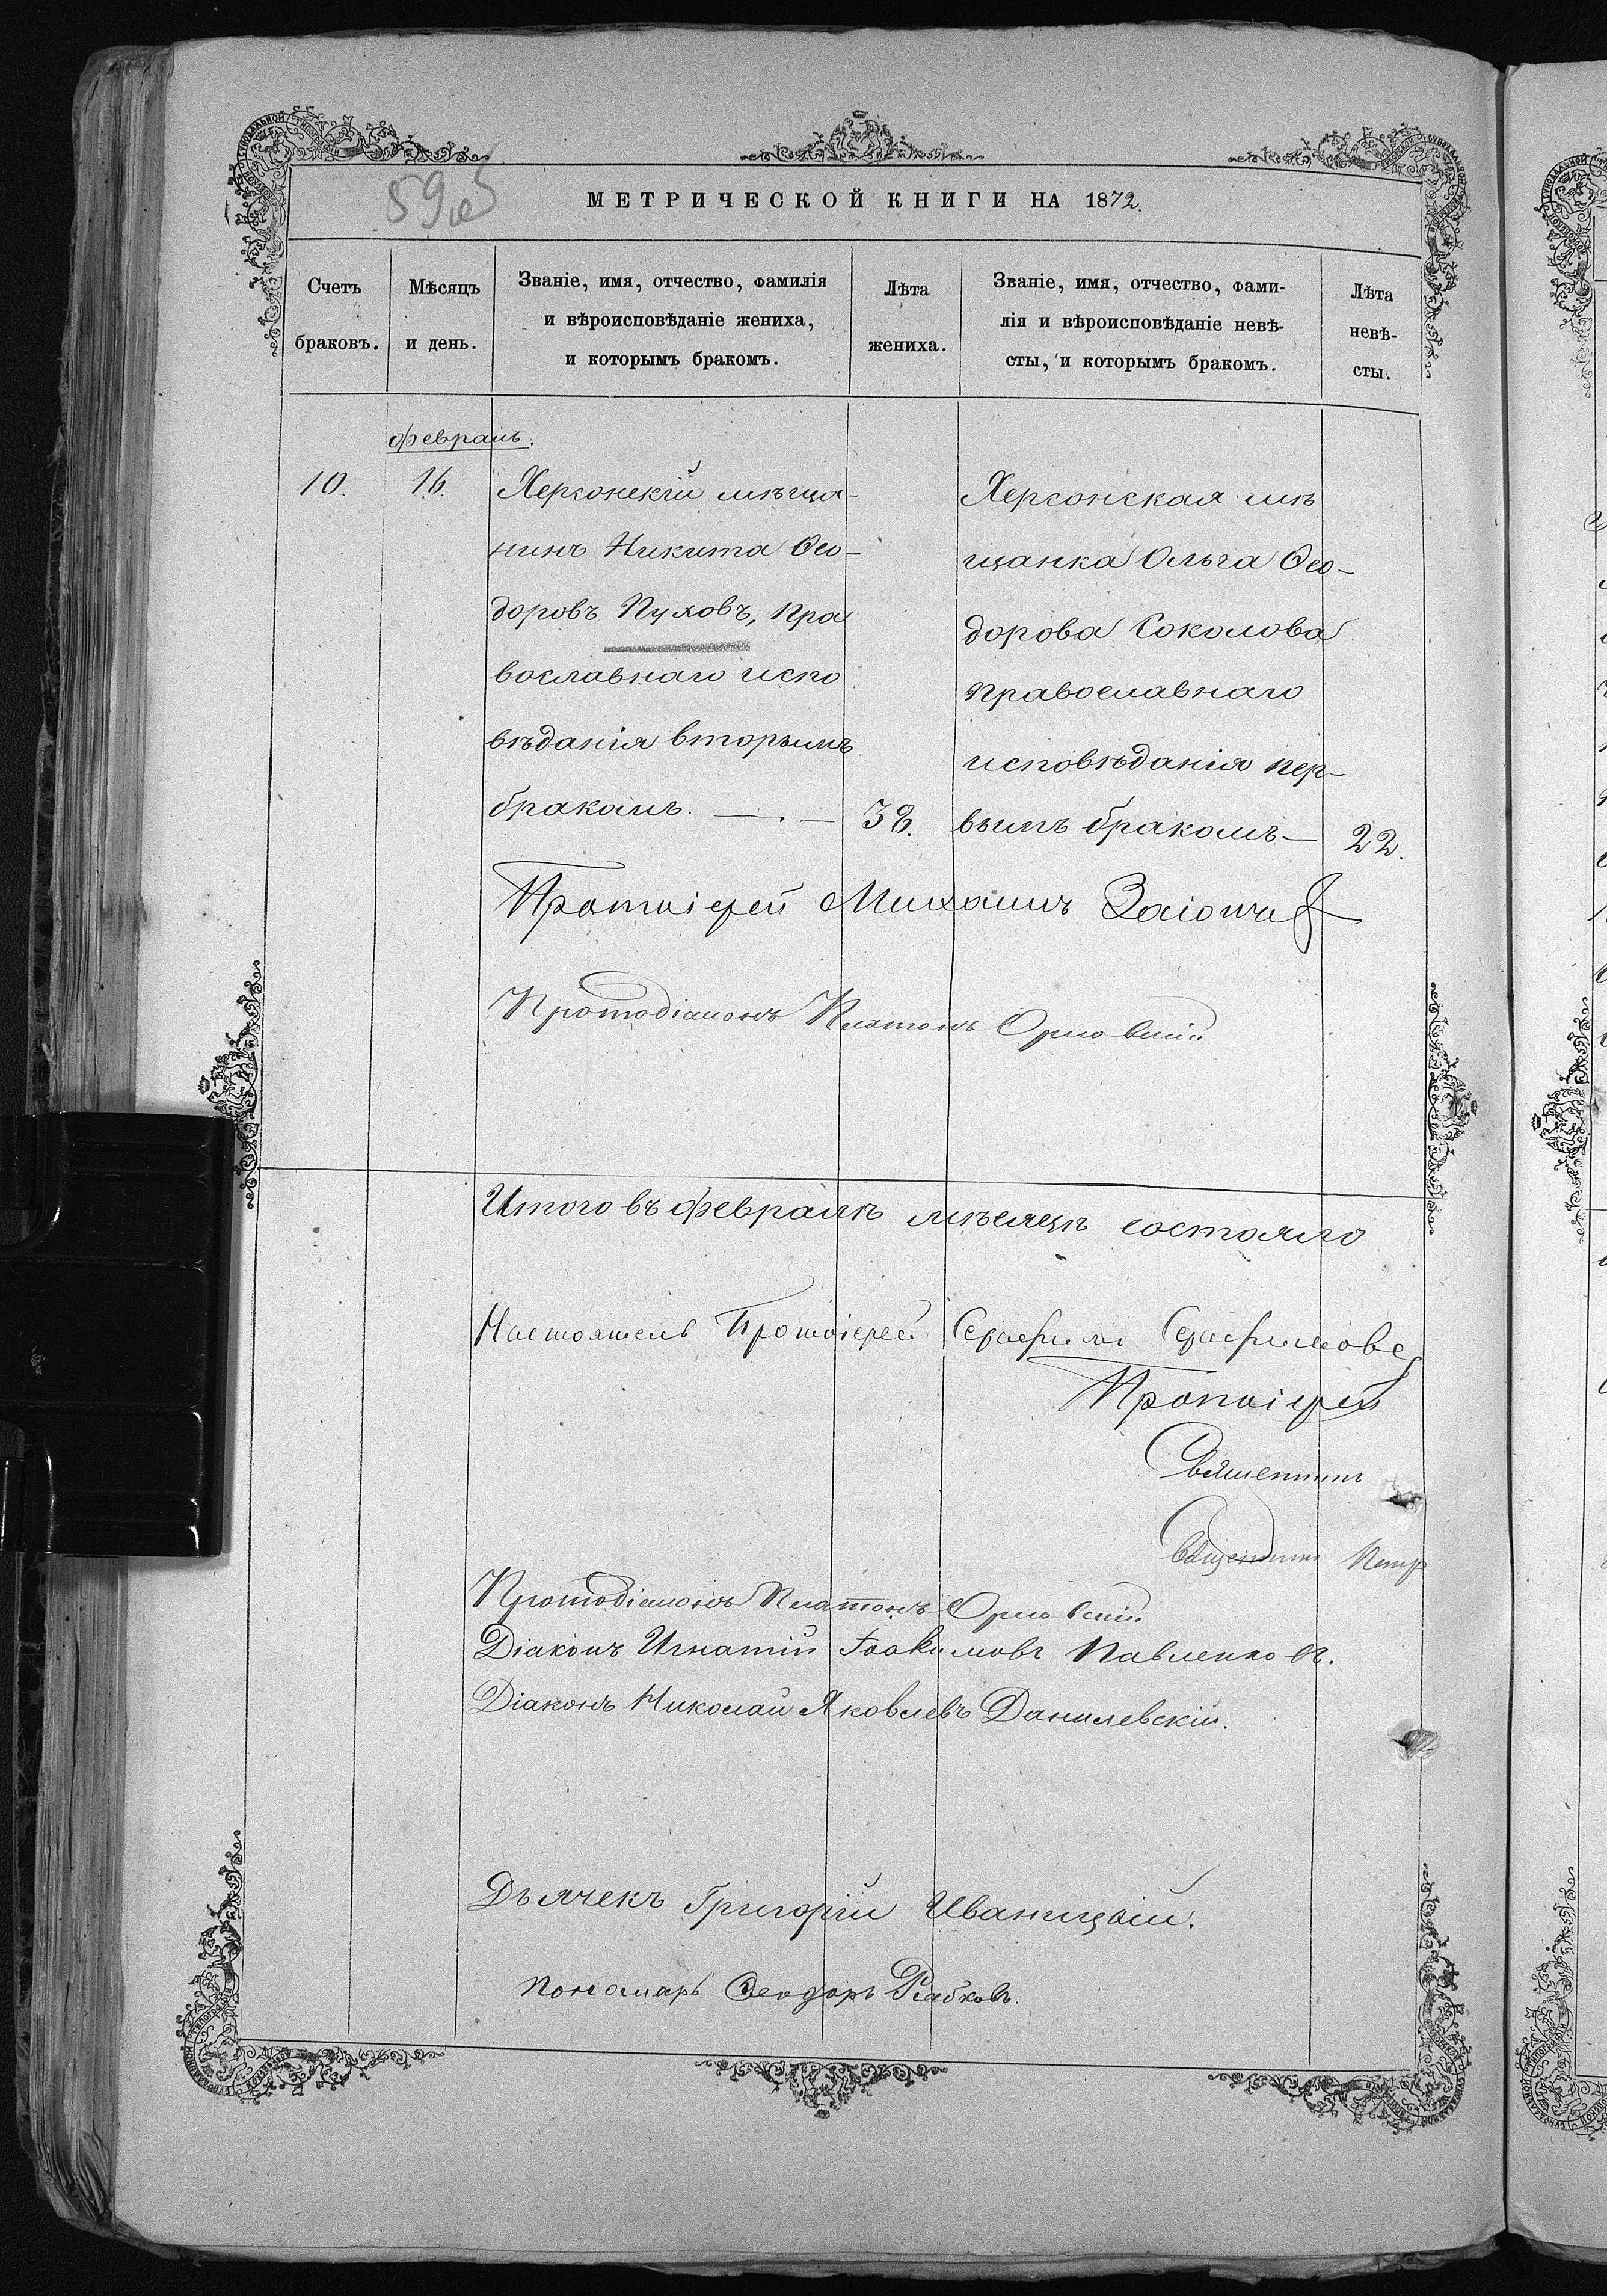 МЕТРИЧЕСКОЙ КНИГИ НА 1872.
Счетъ браковъ.
Мѣсяцъ и день.
Званіе, имя, отчество, фамилія
и вѣроисповѣданіе жениха,
и которымъ бракомъ.
Лѣта жениха.
Званіе, имя, отчество, фами-
лія и вѣроисповѣданіе невѣ-
сты, и которымъ бракомъ.
Лѣта невѣ-
сты.
Февраль.
10.
16.
Херсонскій мѣща-
нинъ Никита Ѳео-
доровъ Пуховъ, Пра
вославнаго испо
вѣданія вторымъ
бракомъ. — . —
38.
Херсонская мѣ
щанка Ольга Ѳео-
дорова Соколова
православнаго
исповѣданія пер-
вымъ бракомъ —
22.
Протоіерей Михаилъ
Протодіаконъ Платонъ Орловскій
Итого въ Февралѣ мѣсяцѣ состояло
Настоятель Протоіерей Серафим Серафимовъ
Протоіерей
Священникъ
Священникъ Петр
Протодіаконъ Платонъ Орловскій
Діаконъ Игнатій Іоакимовъ Павленковъ.
Діаконъ Николай Яковлевъ Данилевскій.
Дьячекъ Григорій Иваницкій.
Пономарь Ѳеодоръ Рябковъ.